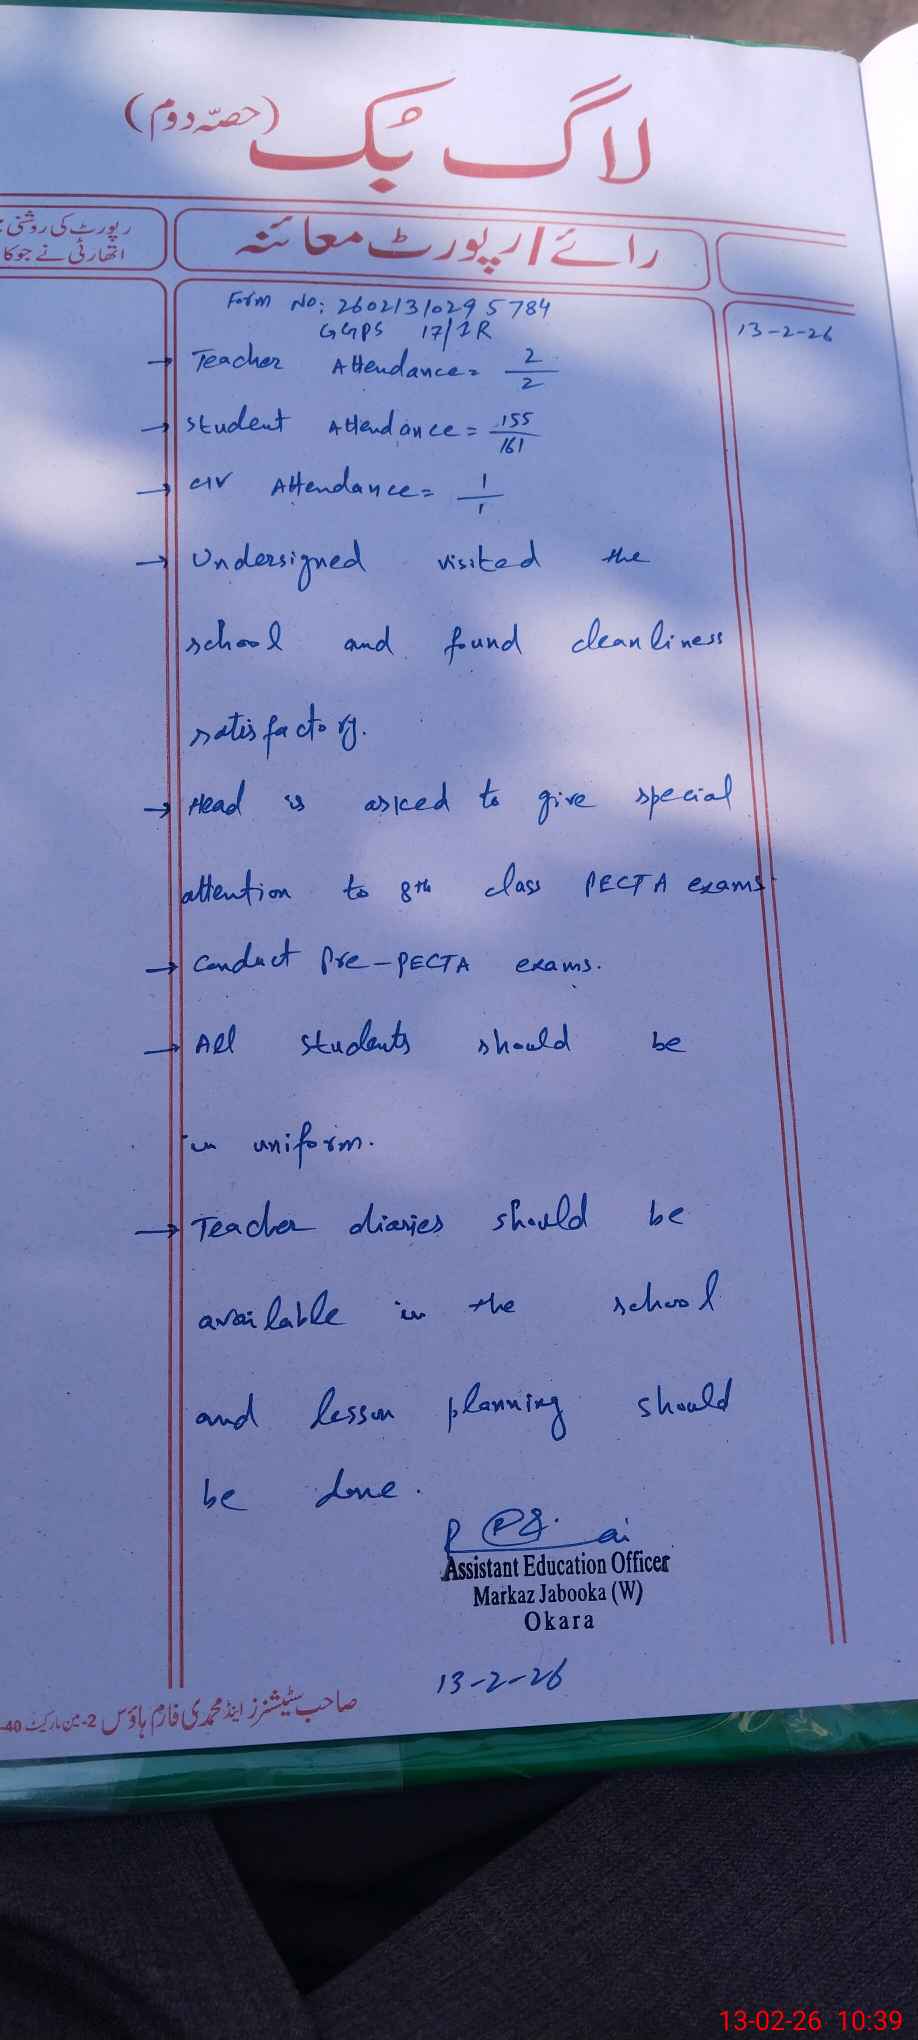 لاگ بُک (حصّہ دوم)
رپورٹ کی روشنی
اتھارٹی نے جو کا
رائے / رپورٹ معائنہ
Form No: 26021310295784
GGPS 17/1R
13-2-26
→ Teacher Attendance = 2/2
→ Student Attendance = 155/161
→ Attendance = 1/1
→ Undersigned visited the
school and found cleanliness
satisfactory.
→ Head is asked to give special
attention to 8th class PECTA exams
→ Conduct Pre-PECTA exams.
→ All students should be
in uniform.
→ Teacher diaries should be
available in the school
and lesson planning should
be done.
Assistant Education Officer
Markaz Jabooka (W)
Okara
13-2-26
صاحب سٹیشنرز اینڈ محمدی فارم ہاؤس 2-مین مارکیٹ 40-
13-02-26 10:39